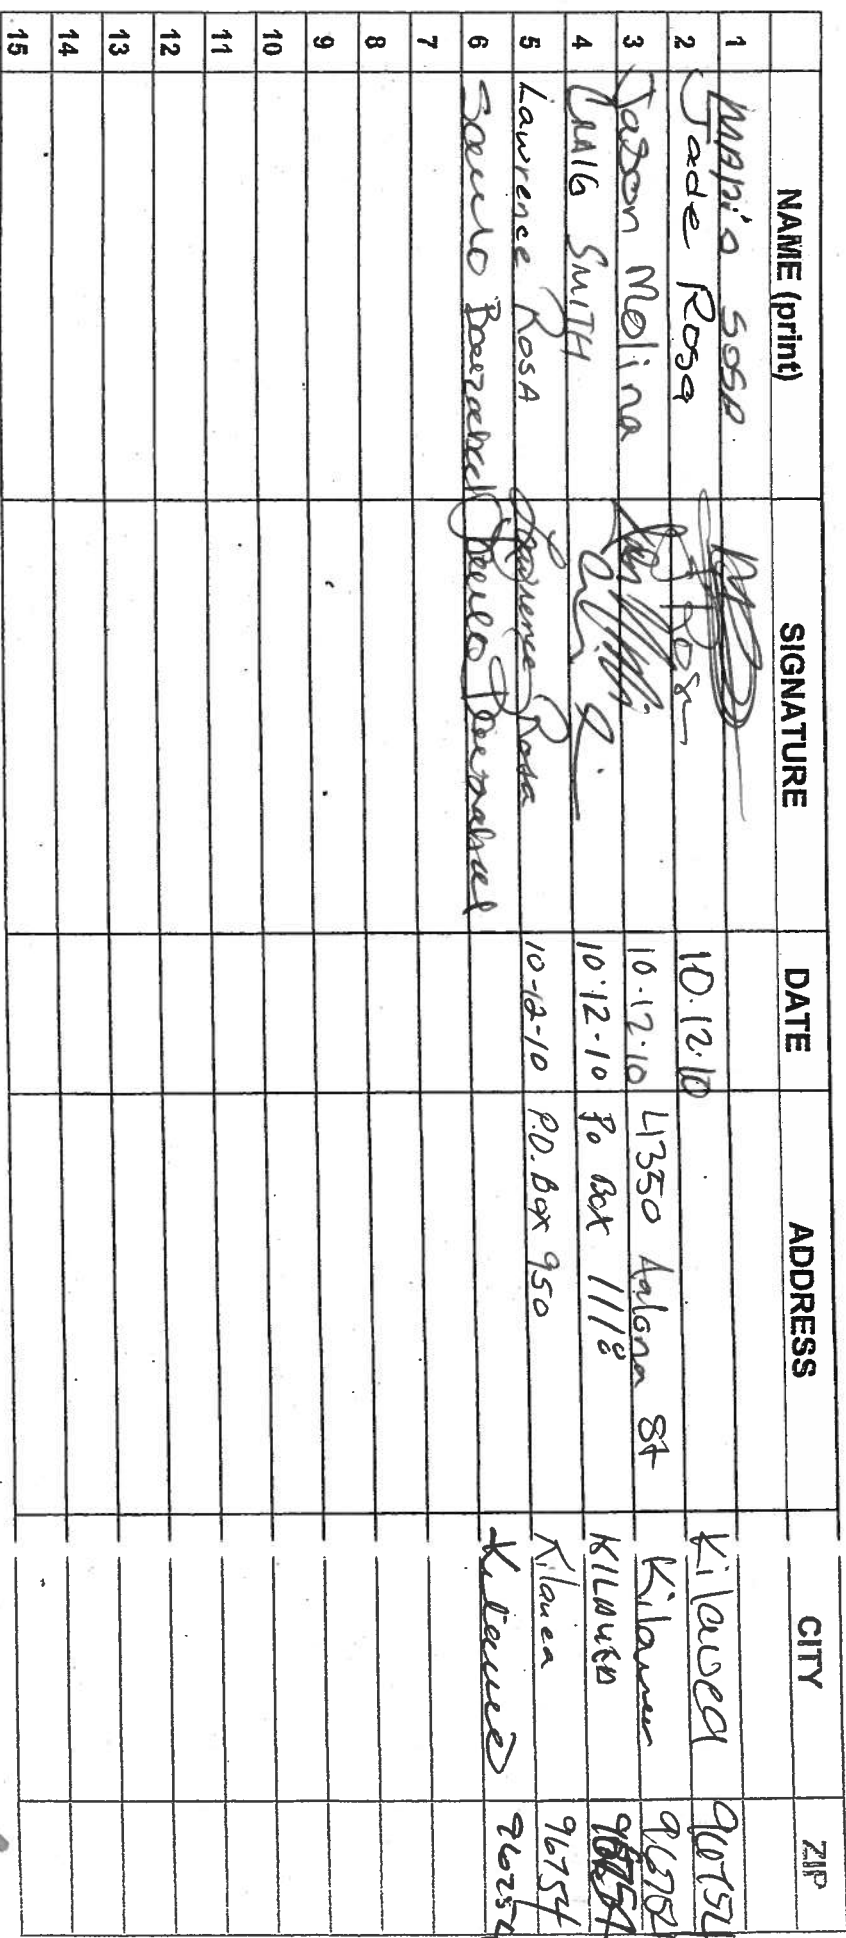 NAME (print) SIGNATURE DATE ADDRESS CITY ZIP
1 SOSA
2 Jade Rosa J Rosa 10.12.10 Kilauea 96754
3 Jason Molina 10.12.10 4350 Aalona St Kilauea
4 CRAIG SMITH 10-12-10 Po Box 1118 KILAUEA 96754
5 Lawrence Rosa Lawrence Rosa 10-12-10 P.O. Box 950 Kilauea 96754
6 Kilauea
7
8
9
10
11
12
13
14
15